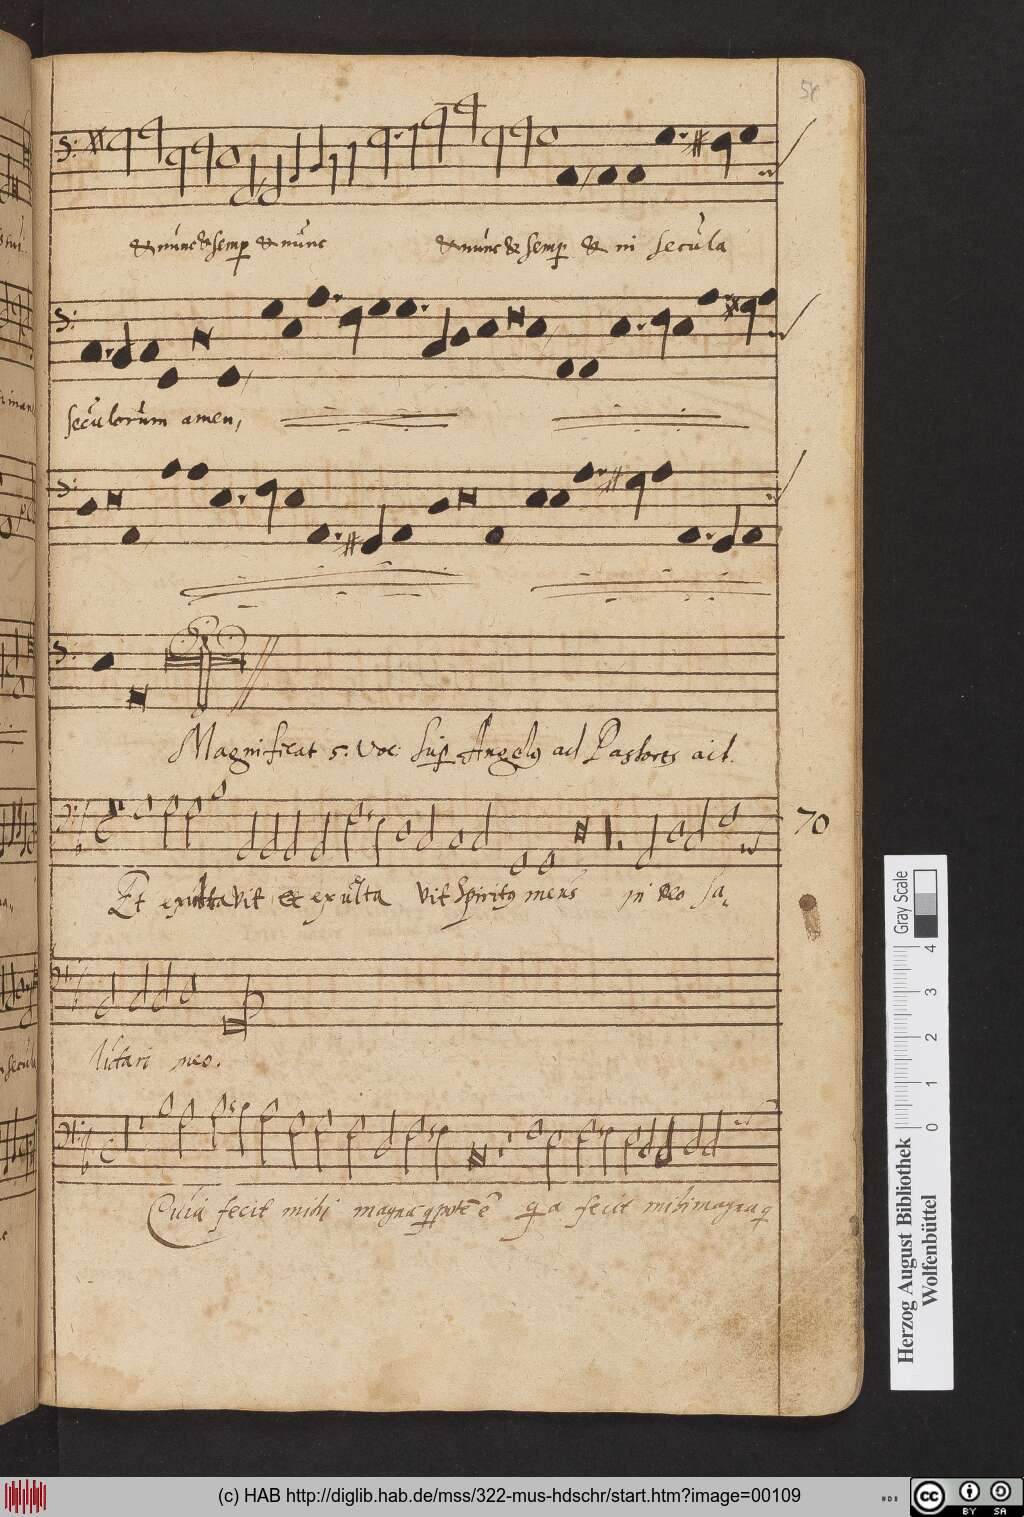 & nunc & semp & nunc & nunc & semp & in secula
seculorum amen,
Magnificat 5. Voc: Sup Angelg ad Pastores ait.
70
Et exultavit & exulta vit Spiritg meus in deo sa
lutari meo.
Quia fecit mihi magna q potēs ē q a fecit mihi magna q
Gray Scale
0 1 2 3 4
Herzog August Bibliothek
Wolfenbüttel
(c) HAB http://diglib.hab.de/mss/322-mus-hdschr/start.htm?image=00109
cc BY SA